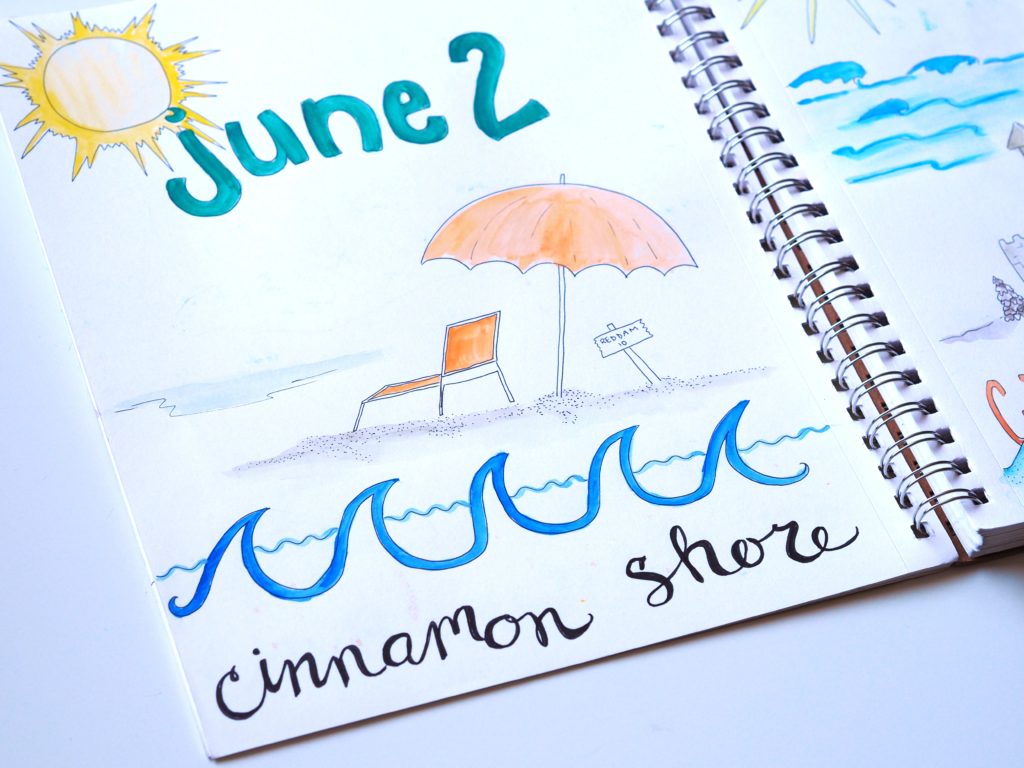 june 2
REDDAM
10
cinnamon shore